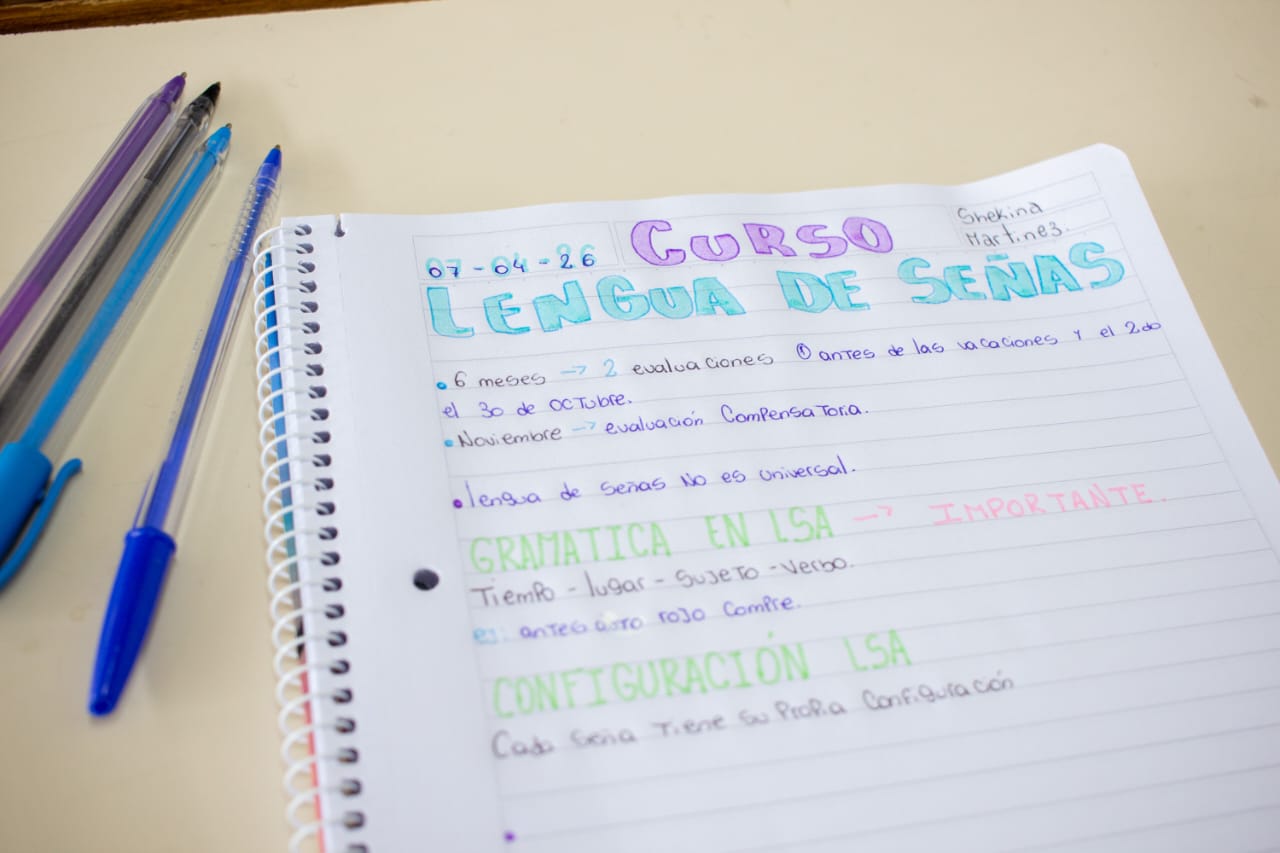 07-04-26 CURSO Shekina
Martinez.
LENGUA DE SEÑAS
• 6 meses → 2 evaluaciones ① antes de las vacaciones y el 2do
el 30 de octubre.
• Noviembre → evaluación Compensatoria.
• lengua de señas No es universal.
GRAMATICA EN LSA → IMPORTANTE.
Tiempo - lugar - Sujeto - Verbo.
ej: antes auto rojo compre.
CONFIGURACIÓN LSA
Cada seña tiene su propia configuración
•